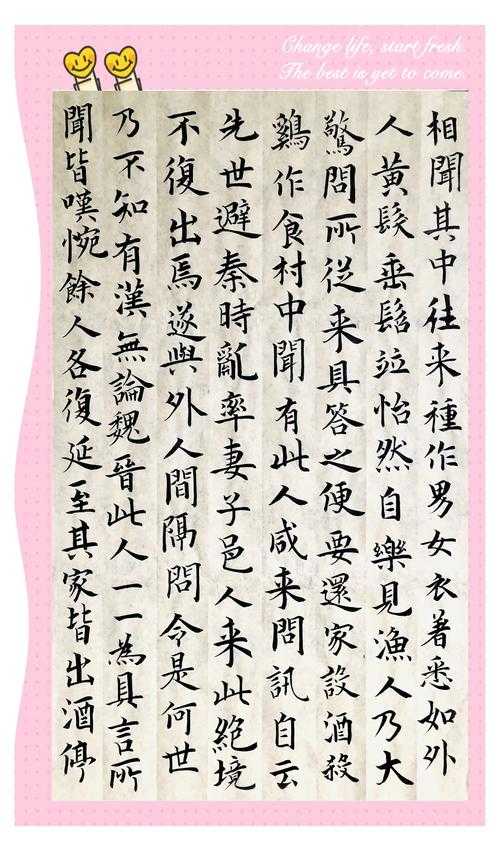 Change life, start fresh.
The best is yet to come.
相聞其中往来種作男女衣著悉如外
人黃髮垂髫竝怡然自樂見漁人乃大
驚問所従来具答之便要還家設酒殺
鷄作食村中聞有此人咸来問訊自云
先世避秦時亂率妻子邑人来此絕境
不復出焉遂與外人間隔問今是何世
乃不知有漢無論魏晉此人一一為具言所
聞皆嘆惋餘人各復延至其家皆出酒停